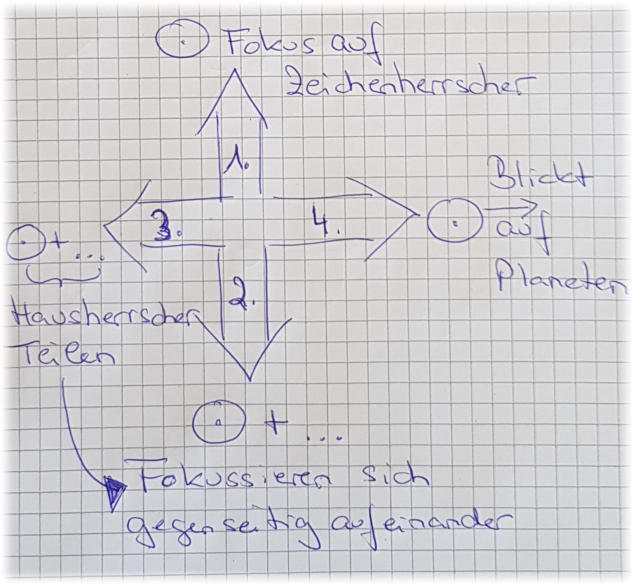 ☉ Fokus auf
Zeichenherrscher
1.
Blickt
3.
4.
☉ → auf
Planeten
☉ + ...
Hausherrscher
Teilen
2.
☉ + ...
Fokussieren sich
gegenseitig aufeinander